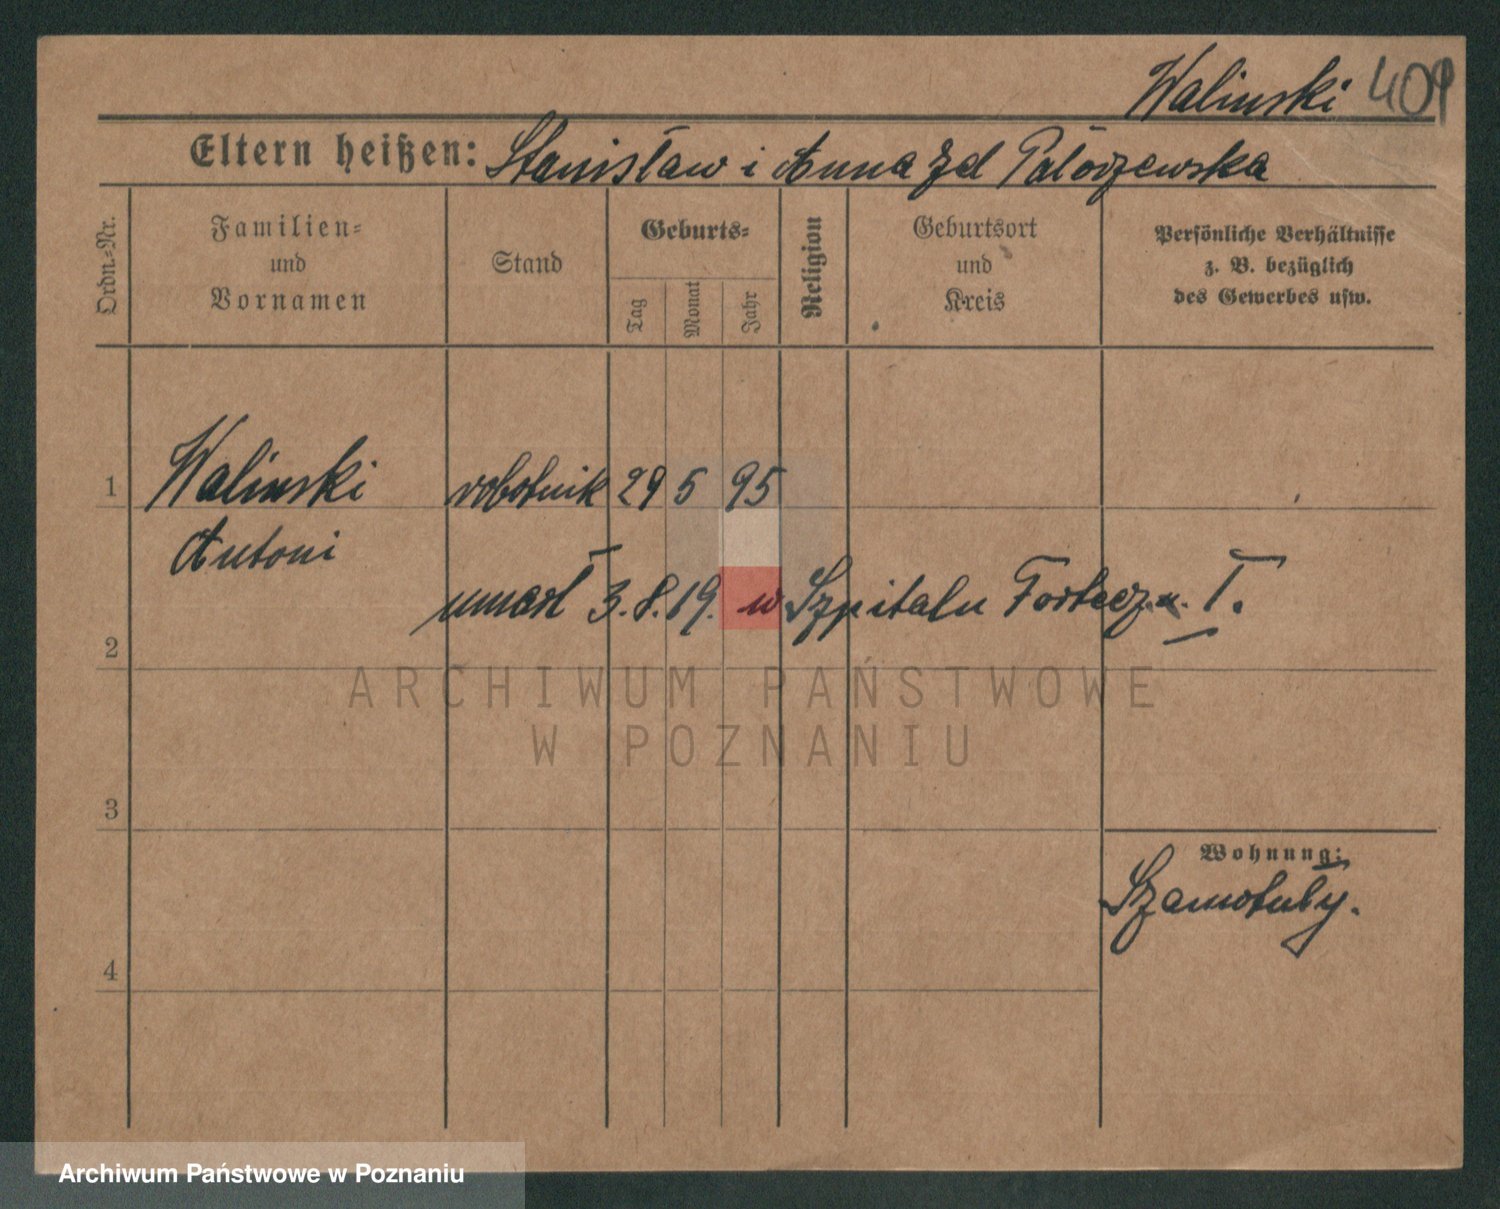 Walinski 409
Eltern heißen: Stanisław i Anna zd
Ordn.-Nr.
Familien-
und
Vornamen
Stand
Geburts-
Tag
Monat
Jahr
Religion
Geburtsort
und
Kreis
Persönliche Verhältnisse
z. B. bezüglich
des Gewerbes usw.
1 Walinski robotnik 29 5 95
Antoni
umarł 3.8.19. w Szpitalu Forteczn. I.
2
ARCHIWUM PAŃSTWOWE
W POZNANIU
3
Wohnung:
Szamotuły.
4
Archiwum Państwowe w Poznaniu